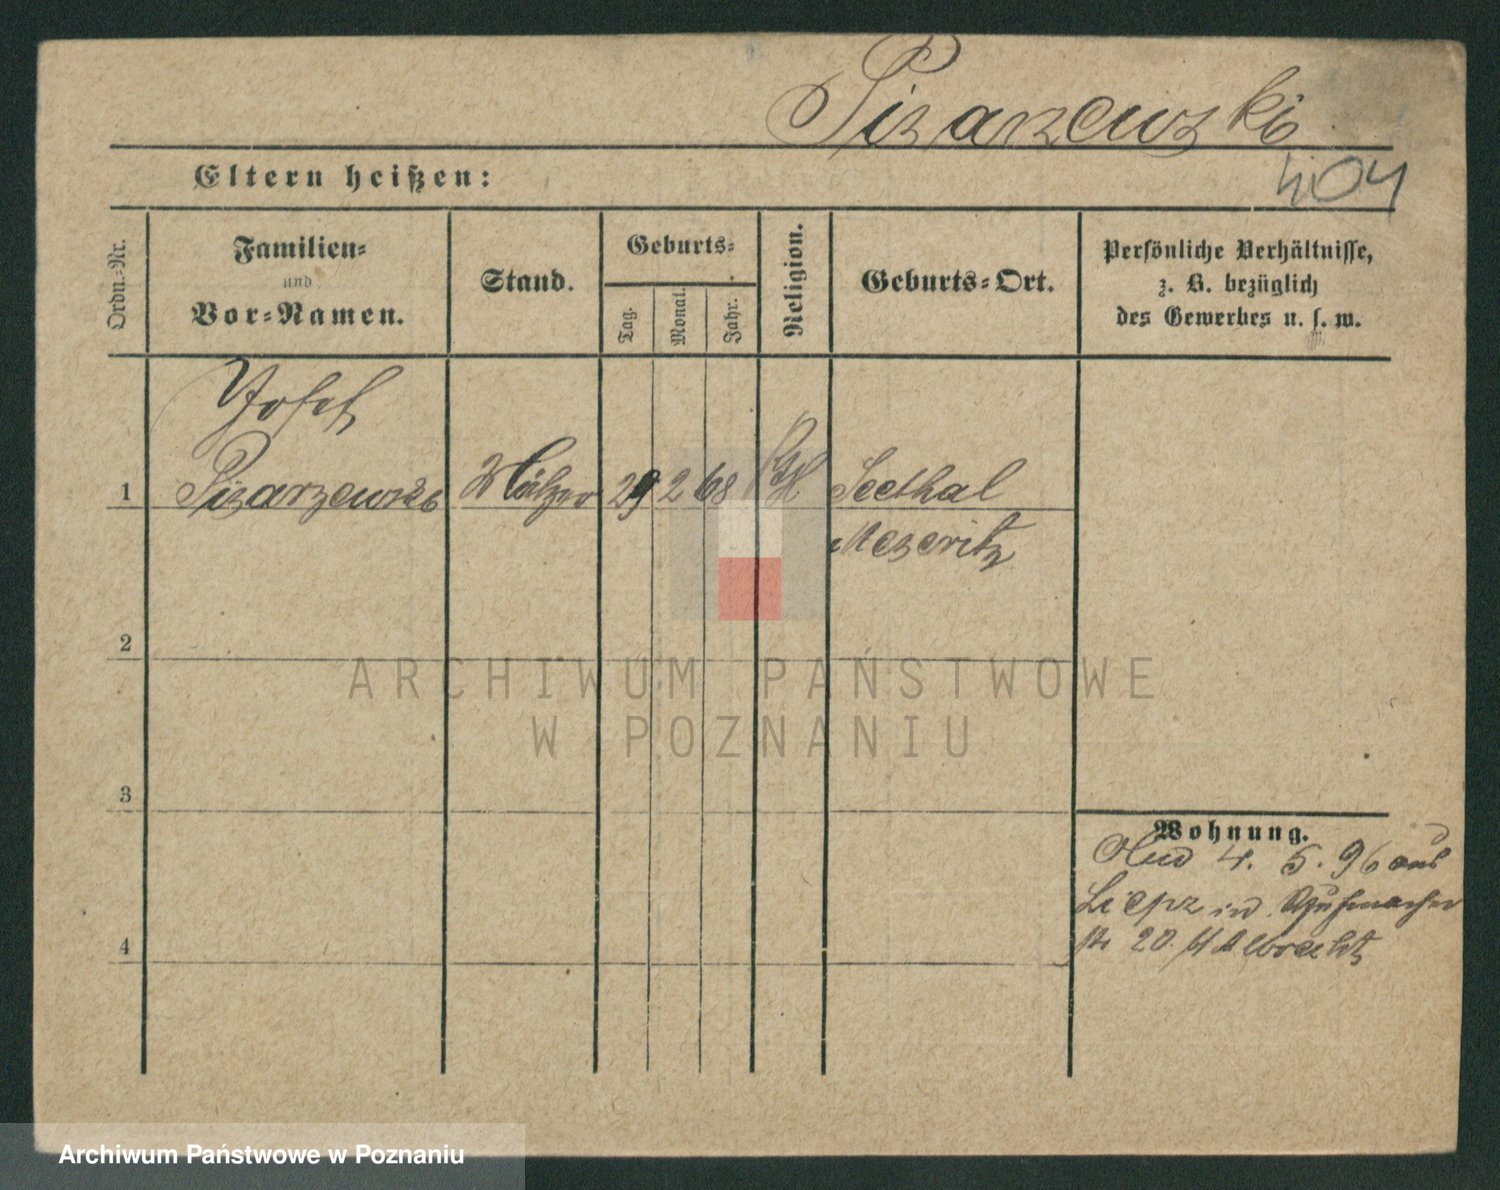 Pisarzewski
404
Eltern heißen:
Ordn.-Nr.
Familien-
und
Vor-Namen.
Stand.
Geburts-
Tag.
Monat.
Jahr.
Religion.
Geburts-Ort.
Persönliche Verhältnisse,
z. B. bezüglich
des Gewerbes u. s. w.
Josef
1 Pisarzewski 29 2 68 Seethal
Meseritz
2
ARCHIWUM PAŃSTWOWE
W POZNANIU
3
Wohnung.
4. 5. 96 aus
in
20 Albrecht
4
Archiwum Państwowe w Poznaniu